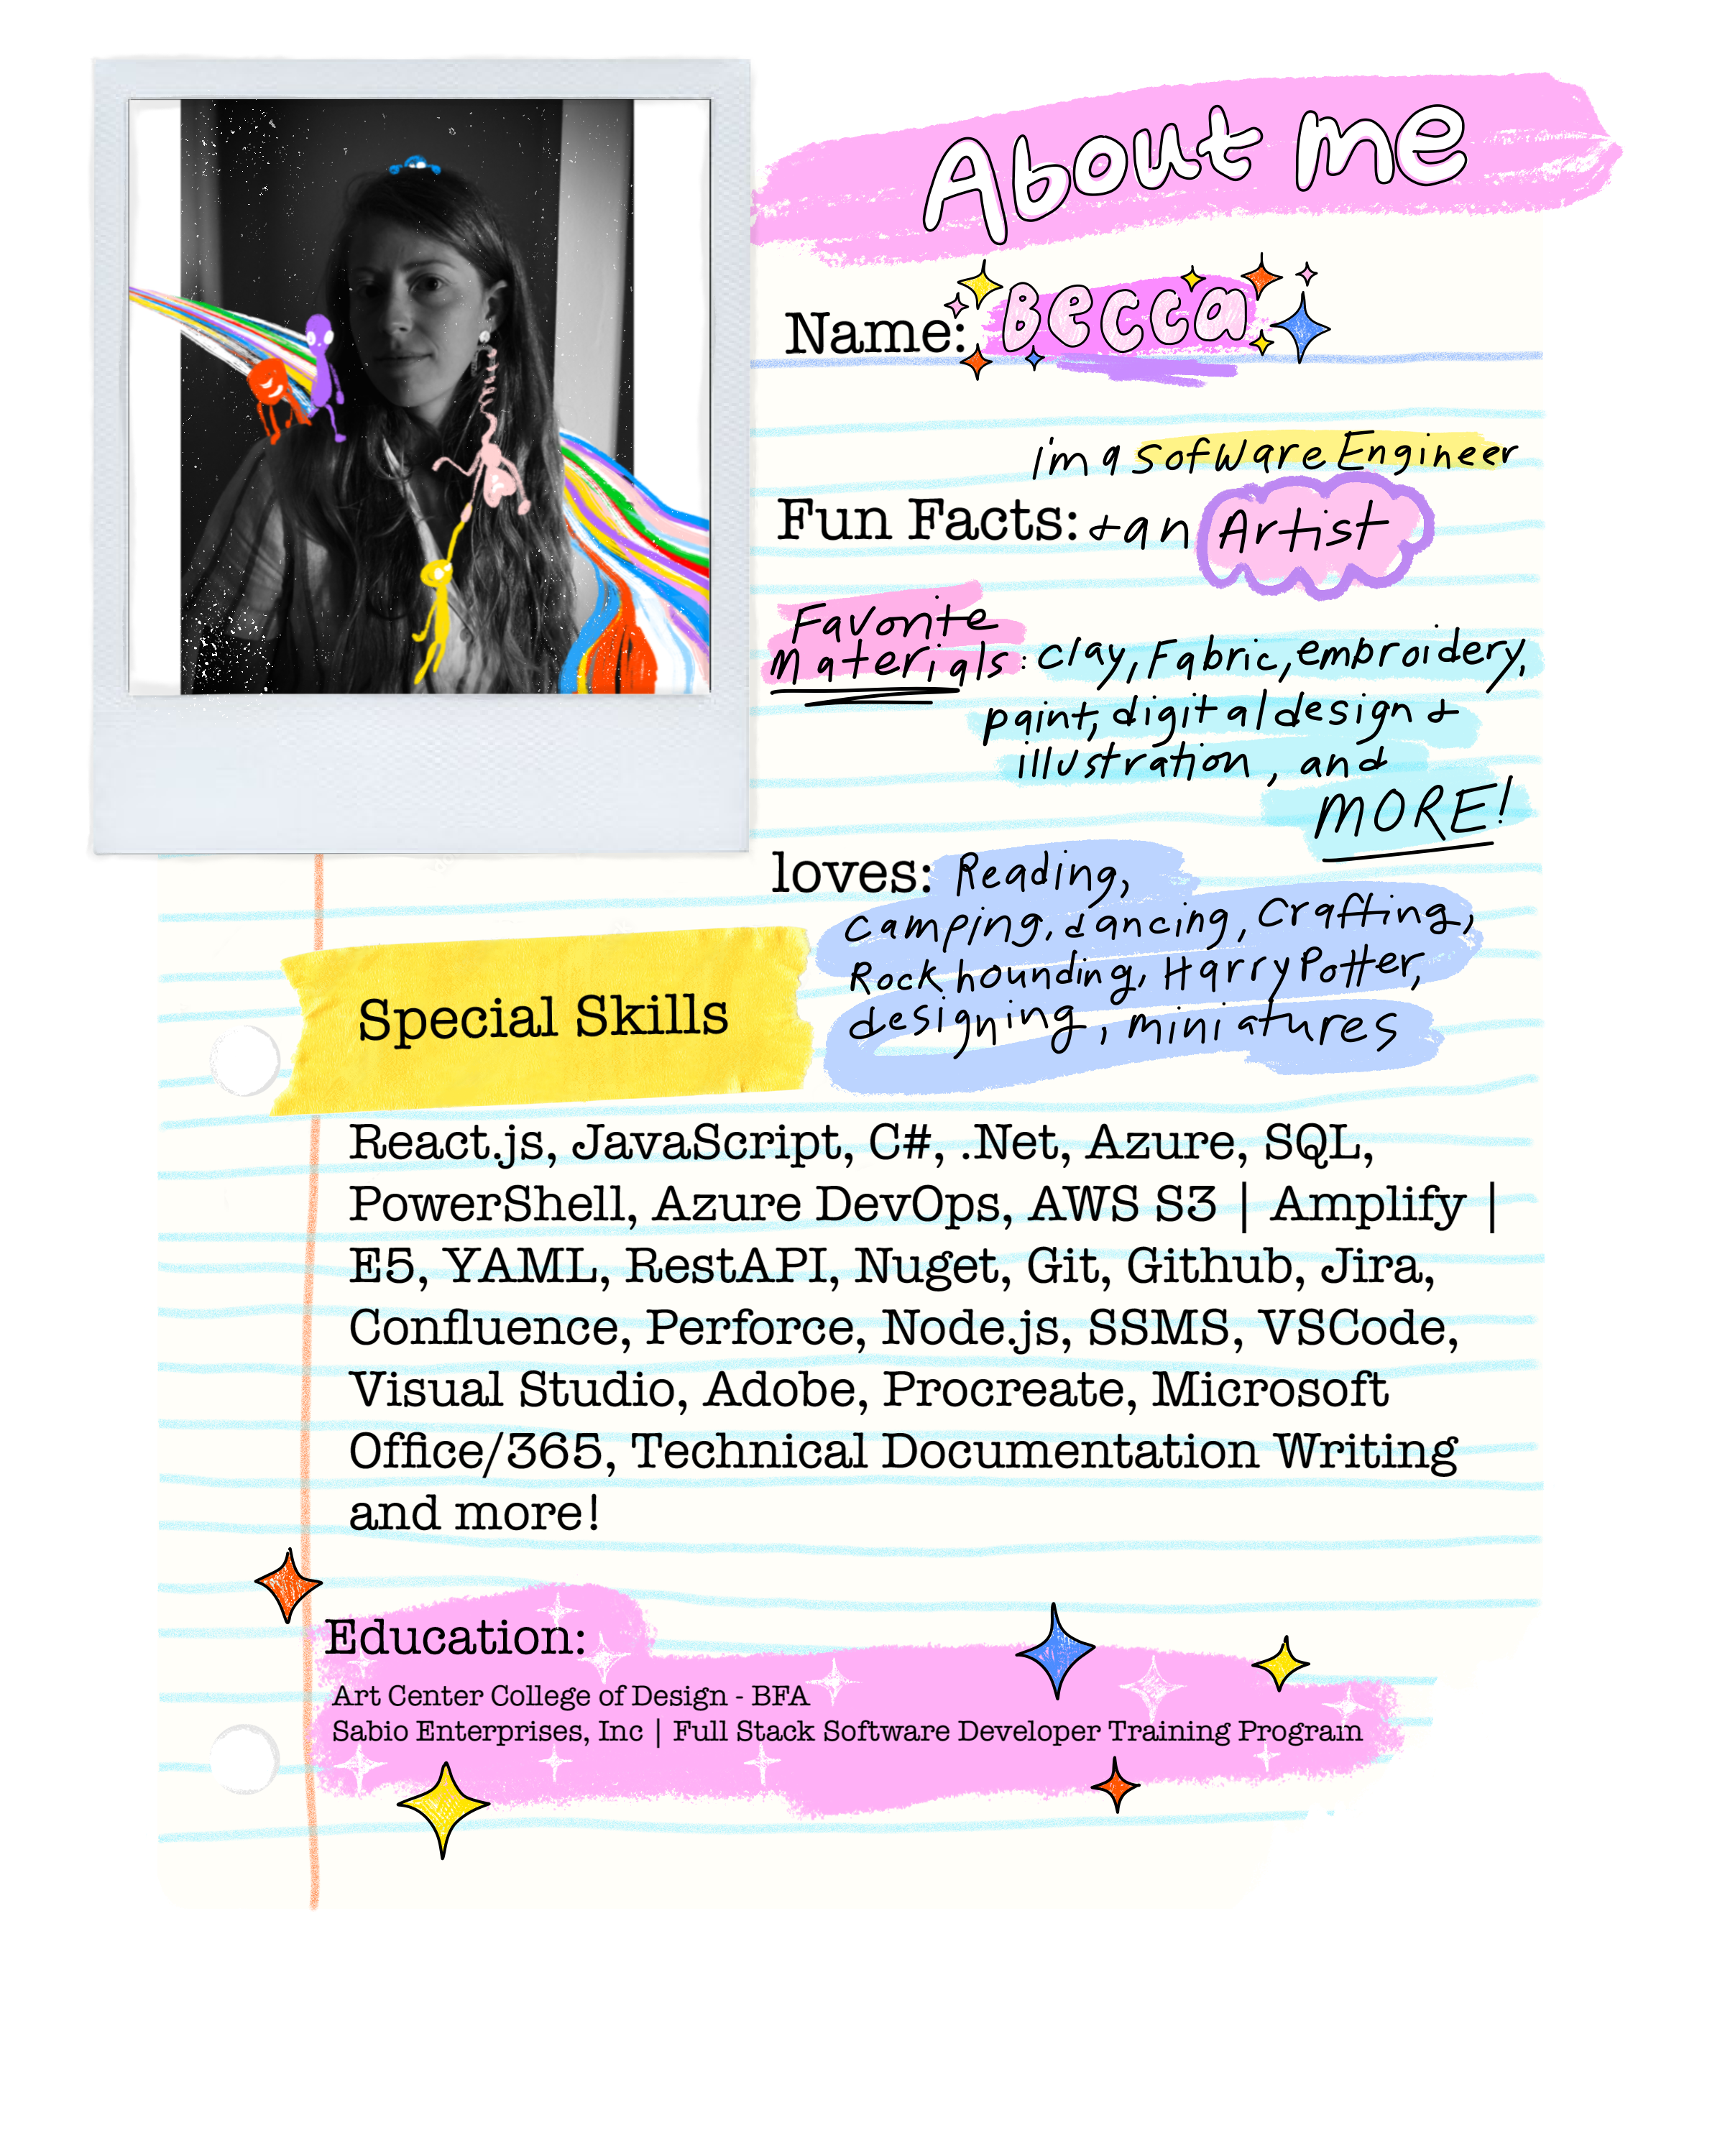 About me
Name: Becca
im a sofware Engineer
Fun Facts: + an Artist
Favorite
Materials: clay, Fabric, embroidery,
paint, digital design +
illustration, and
MORE!
loves: Reading,
camping, dancing, Crafting,
Rock hounding, Harry Potter,
designing, miniatures
Special Skills
React.js, JavaScript, C#, .Net, Azure, SQL,
PowerShell, Azure DevOps, AWS S3 | Amplify |
E5, YAML, RestAPI, Nuget, Git, Github, Jira,
Confluence, Perforce, Node.js, SSMS, VSCode,
Visual Studio, Adobe, Procreate, Microsoft
Office/365, Technical Documentation Writing
and more!
Education:
Art Center College of Design - BFA
Sabio Enterprises, Inc | Full Stack Software Developer Training Program